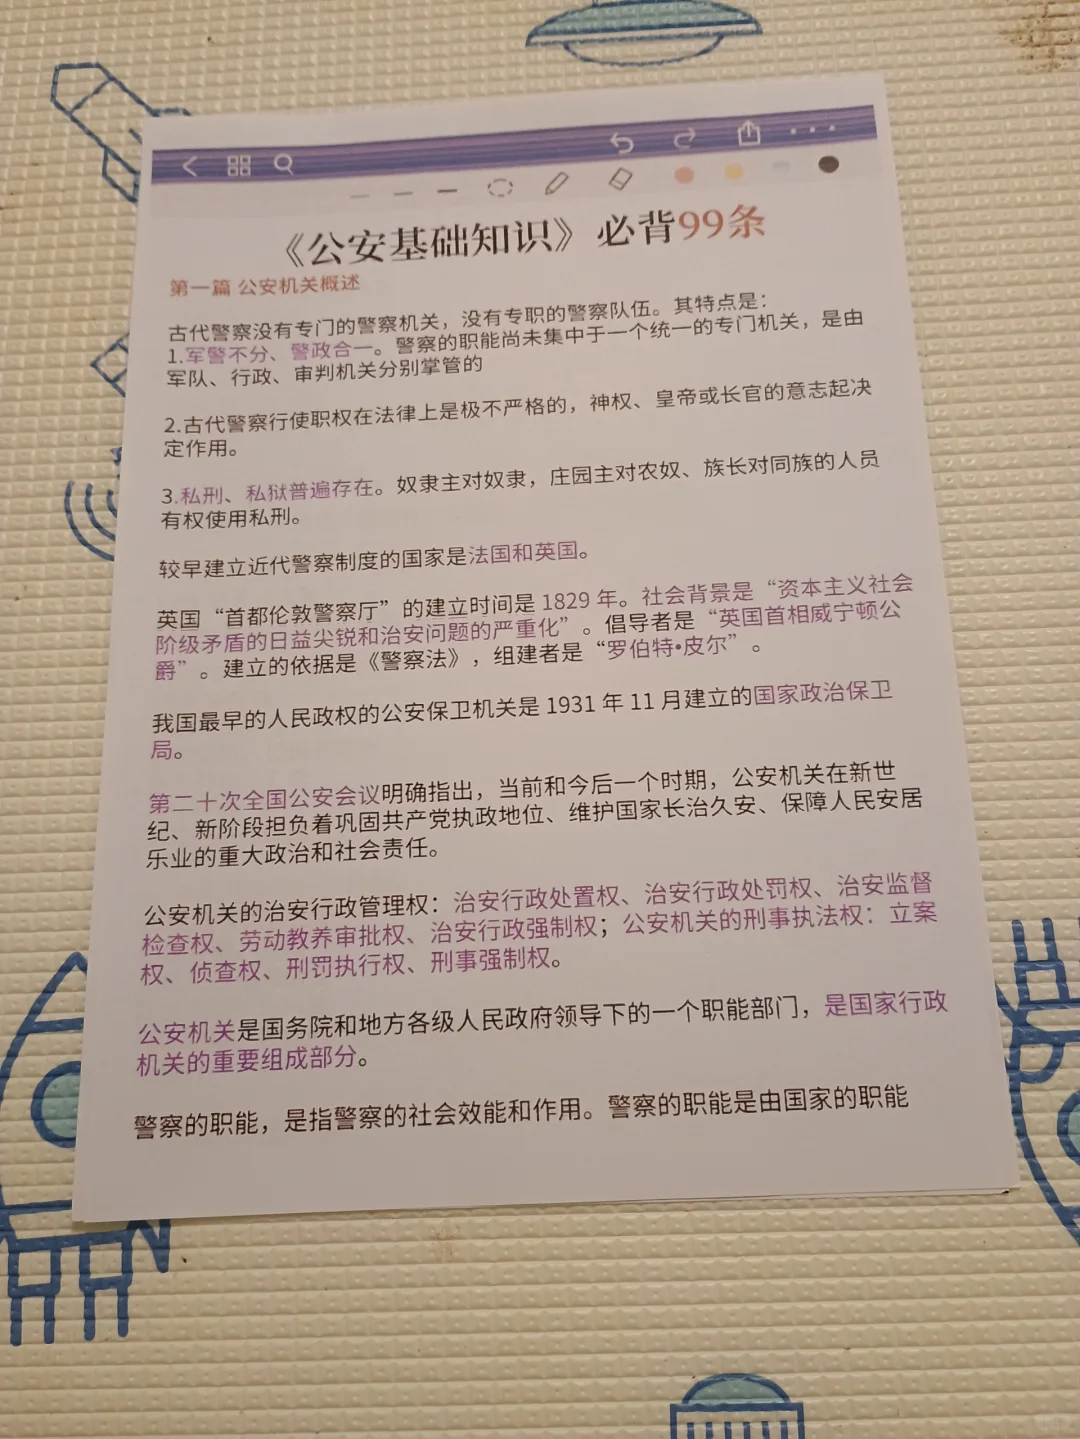 《公安基础知识》必背99条
第一篇 公安机关概述
古代警察没有专门的警察机关，没有专职的警察队伍。其特点是：
1.军警不分、警政合一。警察的职能尚未集中于一个统一的专门机关，是由
军队、行政、审判机关分别掌管的
2.古代警察行使职权在法律上是极不严格的，神权、皇帝或长官的意志起决
定作用。
3.私刑、私狱普遍存在。奴隶主对奴隶，庄园主对农奴、族长对同族的人员
有权使用私刑。
较早建立近代警察制度的国家是法国和英国。
英国“首都伦敦警察厅”的建立时间是 1829 年。社会背景是“资本主义社会
阶级矛盾的日益尖锐和治安问题的严重化”。倡导者是“英国首相威宁顿公
爵”。建立的依据是《警察法》，组建者是“罗伯特•皮尔”。
我国最早的人民政权的公安保卫机关是 1931 年 11 月建立的国家政治保卫
局。
第二十次全国公安会议明确指出，当前和今后一个时期，公安机关在新世
纪、新阶段担负着巩固共产党执政地位、维护国家长治久安、保障人民安居
乐业的重大政治和社会责任。
公安机关的治安行政管理权：治安行政处置权、治安行政处罚权、治安监督
检查权、劳动教养审批权、治安行政强制权；公安机关的刑事执法权：立案
权、侦查权、刑罚执行权、刑事强制权。
公安机关是国务院和地方各级人民政府领导下的一个职能部门，是国家行政
机关的重要组成部分。
警察的职能，是指警察的社会效能和作用。警察的职能是由国家的职能